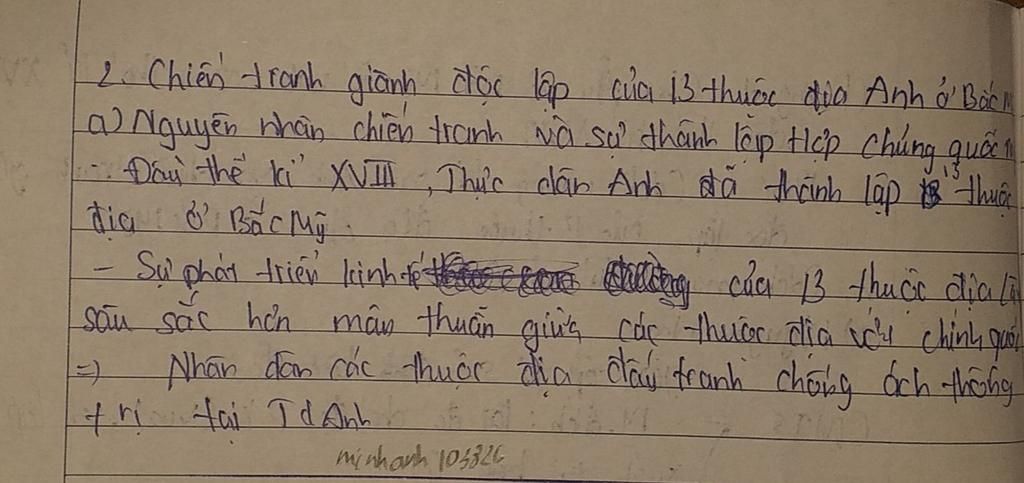 2. Chiến tranh giành độc lập của 13 thuộc địa Anh ở Bắc
a) Nguyên nhân chiến tranh và sự thành lập Hợp chúng quốc
- Đầu thế kỉ XVIII, Thực dân Anh đã thành lập 13 thuộc
địa ở Bắc Mỹ.
- Sự phát triển kinh tế của 13 thuộc địa
sâu sắc hơn mâu thuẫn giữa các thuộc địa với chính quốc
=) Nhân dân các thuộc địa đấu tranh chống ách thống
trị tại Td Anh
minhanh